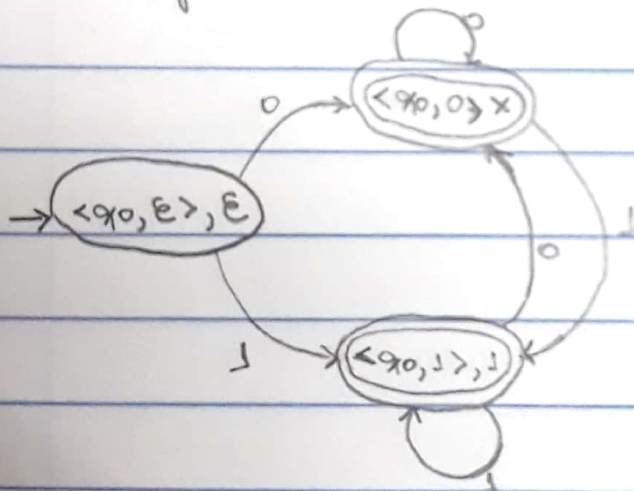 0
<q0, 0>, x
0
→ <q0, ε>, ε
1
0
1
<q0, 1>, 1
1